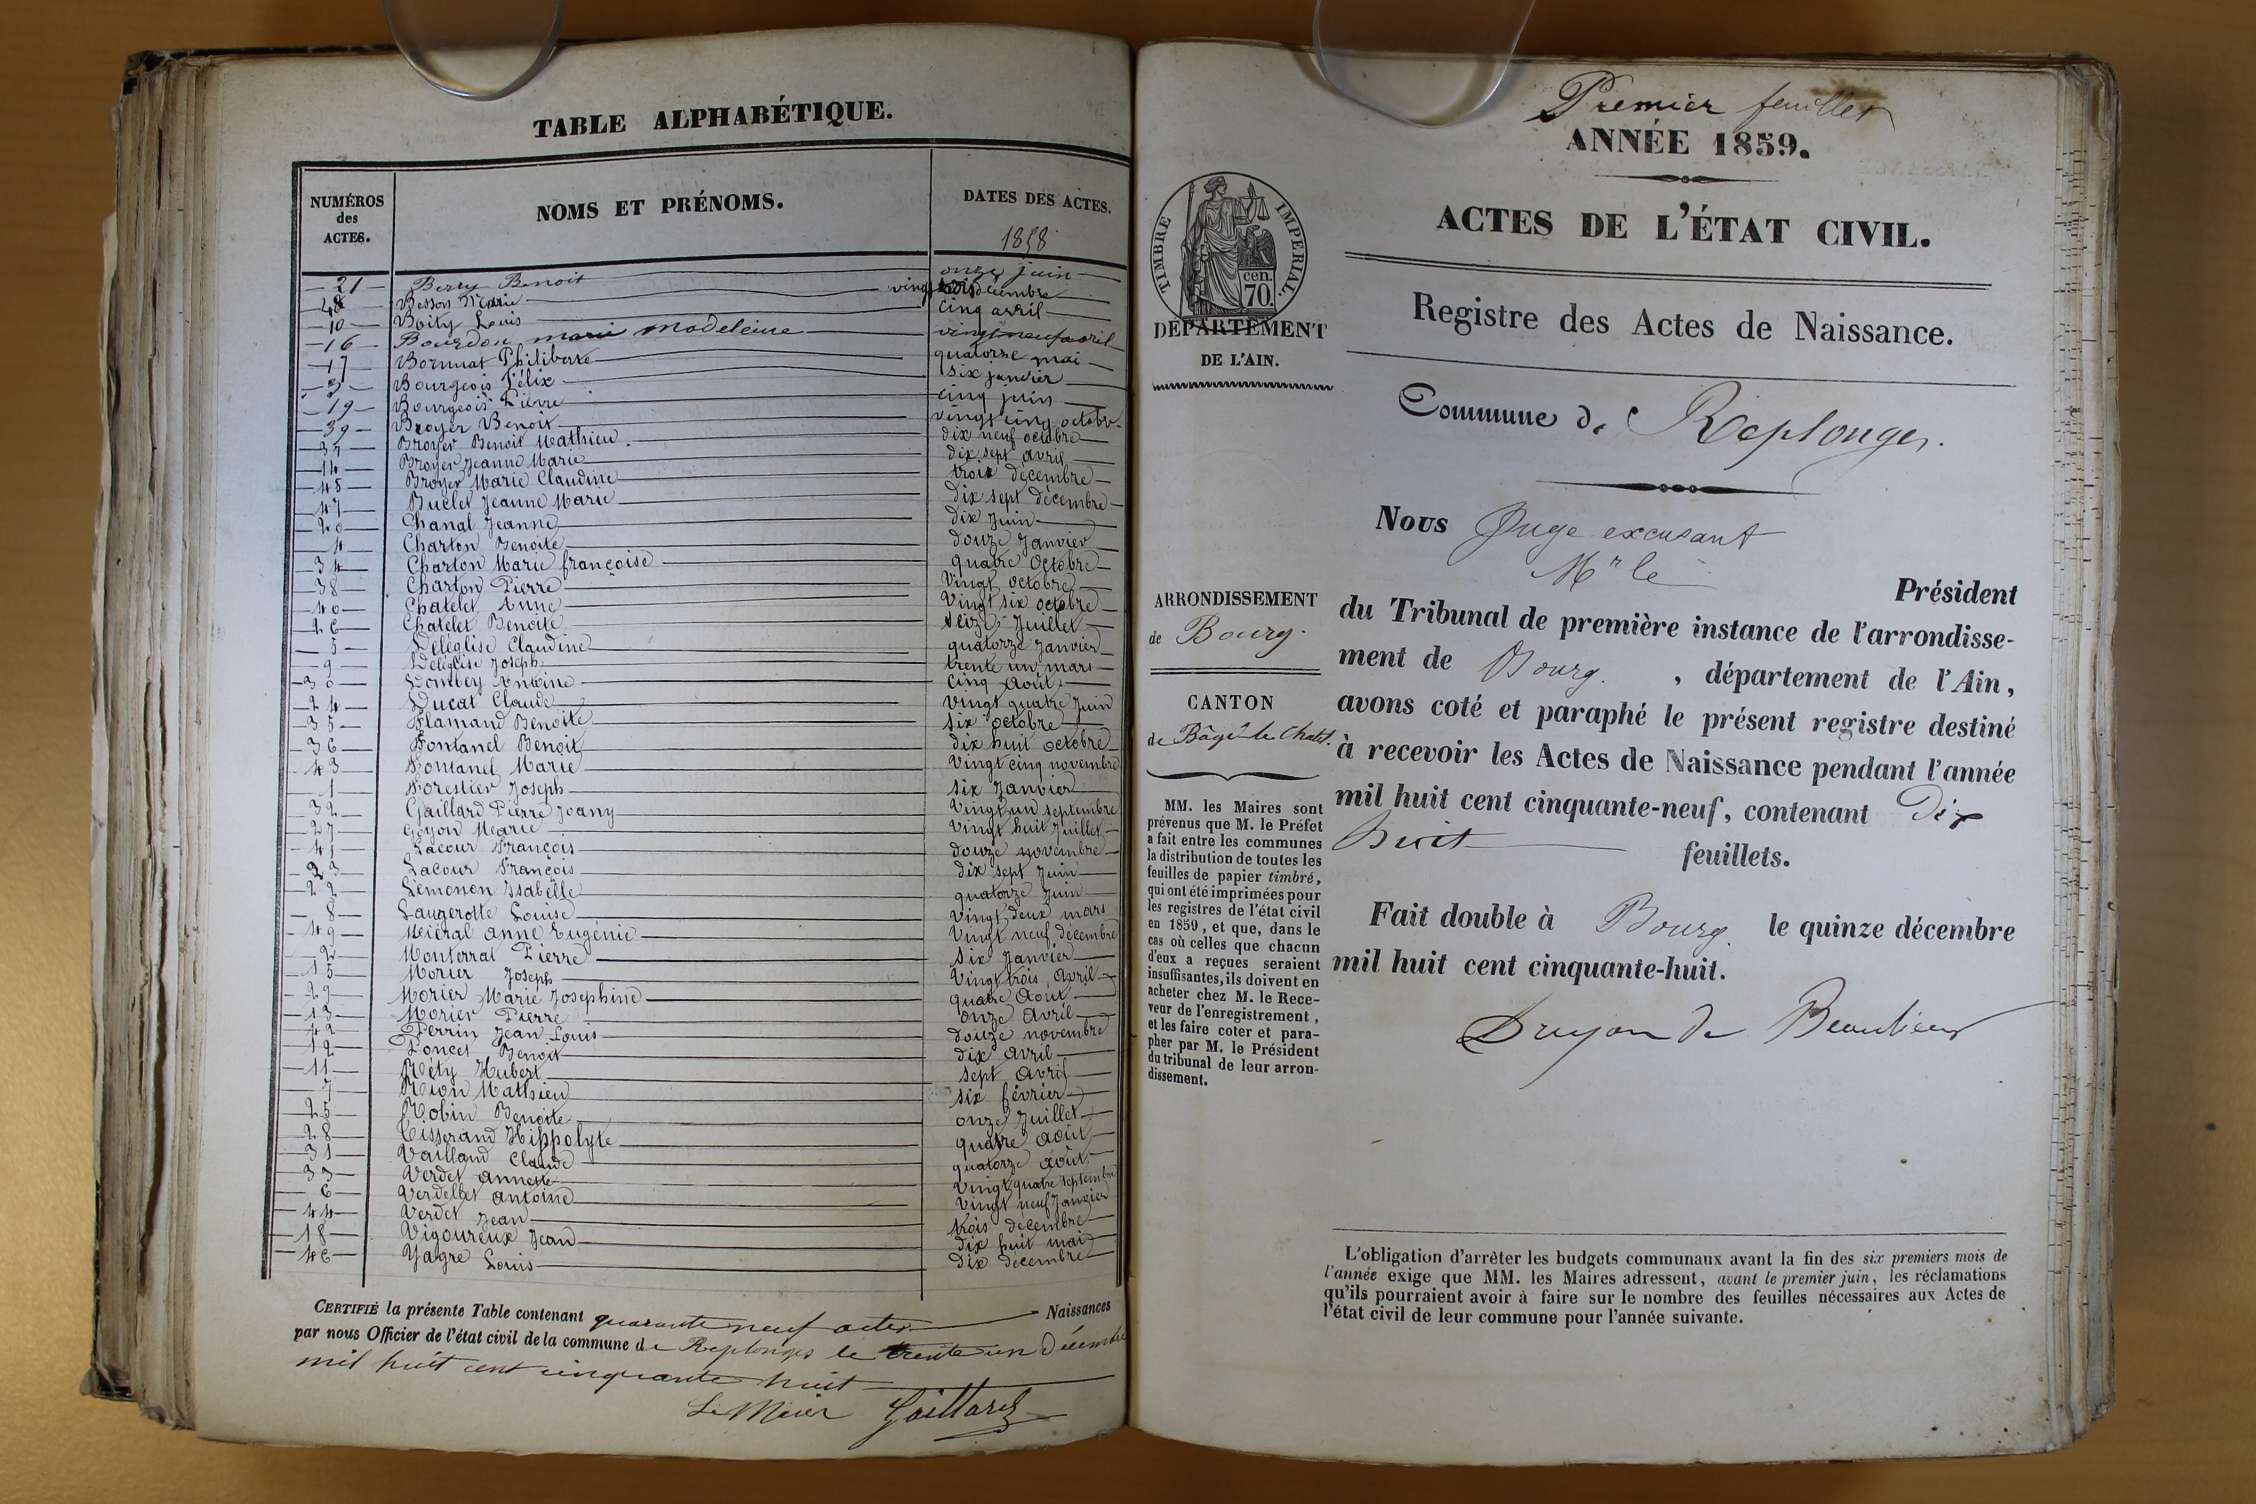 TABLE ALPHABÉTIQUE.
NUMÉROS des ACTES. NOMS ET PRÉNOMS. DATES DES ACTES.
1858
21 Berry Benoit onze juin
48 Besson Marie vingt décembre
10 Boity Louis cinq avril
16 Bourdon marie madeleine vingt neuf avril
17 Bornuat Philiberte quatorze mai
3 Bourgeois Félix six janvier
19 Bourgeois Pierre cinq juin
39 Broyer Benoit vingt cinq octobre
37 Broyer Benoit Mathieu dix neuf octobre
14 Broyer Jeanne Marie dix sept avril
45 Broyer Marie Claudine trois décembre
47 Buclet Jeanne Marie dix sept décembre
20 Chanal Jeanne dix Juin
4 Charton Benoite douze Janvier
34 Charton Marie françoise quatre Octobre
38 Charton Pierre Vingt octobre
40 Chatelet Anne Vingt six octobre
26 Chatelet Benoite seize Juillet
5 Deléglise Claudine quatorze Janvier
9 Deléglise Joseph trente un mars
30 Dombey Antoine Cinq Août
24 Ducat Claude vingt quatre Juin
35 Flamand Benoite six octobre
36 Fontanel Benoit dix huit octobre
43 Fontanel Marie Vingt cinq novembre
1 Forestier Joseph six Janvier
32 Gaillard Pierre Joany Vingt un septembre
27 Goyon Marie Vingt huit Juillet
41 Lacour François douze novembre
23 Lacour François dix sept Juin
22 Lemonon Isabelle quatorze Juin
8 Laugerotte Louise Vingt deux mars
49 Miéral Anne Eugénie Vingt neuf décembre
2 Monterrat Pierre six Janvier
15 Morier Joseph Vingt trois Avril
29 Morier Marie Josephine quatre Août
13 Morier Pierre onze Avril
42 Perrin Jean Louis douze novembre
12 Poncet Benoit dix Avril
11 Réty Hubert sept Avril
7 Rion Mathieu six février
25 Robin Benoite onze Juillet
28 Tisserand Hippolyte quatre août
31 Vailland Claude quatorze août
33 Verdet Annette Vingt quatre septembre
6 Verdellet Antoine Vingt neuf Janvier
44 Verdet Jean trois décembre
18 Vigoureux Jean dix huit mai
46 Yagre Louis dix décembre
CERTIFIÉ la présente Table contenant quarante neuf actes Naissances
par nous Officier de l'état civil de la commune de Replonges le trente un Décembre
mil huit cent cinquante huit
Le Maire Gaillard
Premier feuillet
ANNÉE 1859.
ACTES DE L'ÉTAT CIVIL.
TIMBRE IMPÉRIAL.
70 cen.
DÉPARTEMENT
DE L'AIN.
Registre des Actes de Naissance.
Commune de Replonges.
Nous Juge excusant
Mr le Président
du Tribunal de première instance de l'arrondisse-
ment de Bourg. , département de l'Ain,
avons coté et paraphé le présent registre destiné
à recevoir les Actes de Naissance pendant l'année
mil huit cent cinquante-neuf, contenant Dix
huit feuillets.
Fait double à Bourg. le quinze décembre
mil huit cent cinquante-huit.
Druyon de Beaulieu
ARRONDISSEMENT
de Bourg.
CANTON
de Bâgé-le-Chatel.
MM. les Maires sont
prévenus que M. le Préfet
a fait entre les communes
la distribution de toutes les
feuilles de papier timbré,
qui ont été imprimées pour
les registres de l'état civil
en 1859, et que, dans le
cas où celles que chacun
d'eux a reçues seraient
insuffisantes, ils doivent en
acheter chez M. le Rece-
veur de l'enregistrement,
et les faire coter et para-
pher par M. le Président
du tribunal de leur arron-
dissement.
L'obligation d'arrêter les budgets communaux avant la fin des six premiers mois de
l'année exige que MM. les Maires adressent, avant le premier juin, les réclamations
qu'ils pourraient avoir à faire sur le nombre des feuilles nécessaires aux Actes de
l'état civil de leur commune pour l'année suivante.